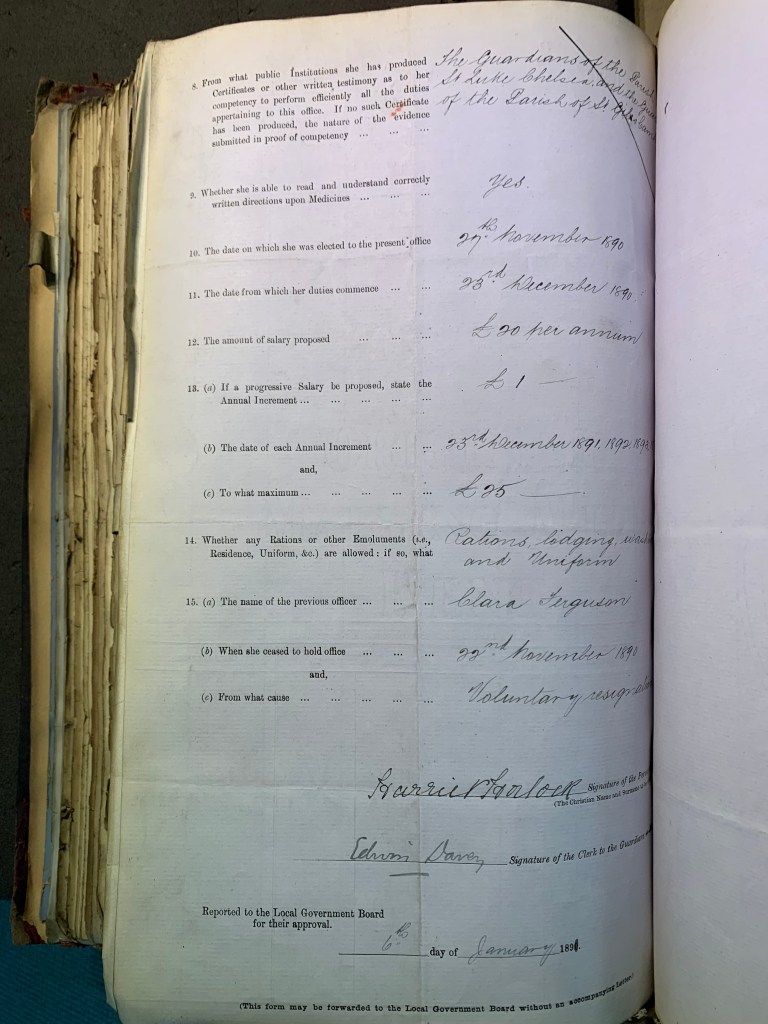 8. From what public Institutions she has produced
Certificates or other written testimony as to her
competency to perform efficiently all the duties
appertaining to this office. If no such Certificate
has been produced, the nature of the evidence
submitted in proof of competency ... ... ...
The Guardians of the Parish
St Luke Chelsea, and the
of the Parish of St
9. Whether she is able to read and understand correctly
written directions upon Medicines ... ... ...
Yes.
10. The date on which she was elected to the present office
27th November 1890
11. The date from which her duties commence ... ...
23rd December 1890
12. The amount of salary proposed ... ... ...
£20 per annum
13. (a) If a progressive Salary be proposed, state the
Annual Increment ... ... ... ... ...
£1 —
(b) The date of each Annual Increment ... ...
23rd December 1891, 1892, 1893,
and,
(c) To what maximum ... ... ... ... ...
£25 —
14. Whether any Rations or other Emoluments (i.e.,
Residence, Uniform, &c.) are allowed: if so, what
Rations, lodging,
and Uniform
15. (a) The name of the previous officer ... ... ...
Clara Ferguson
(b) When she ceased to hold office ... ... ...
22nd November 1890
and,
(c) From what cause ... ... ... ... ...
Voluntary
Harriet Horlock Signature of the
(The Christian Name and Surname
Edwin Davey Signature of the Clerk to the Guardians
Reported to the Local Government Board
for their approval.
6th day of January 1891.
(This form may be forwarded to the Local Government Board without an accompanying Letter.)